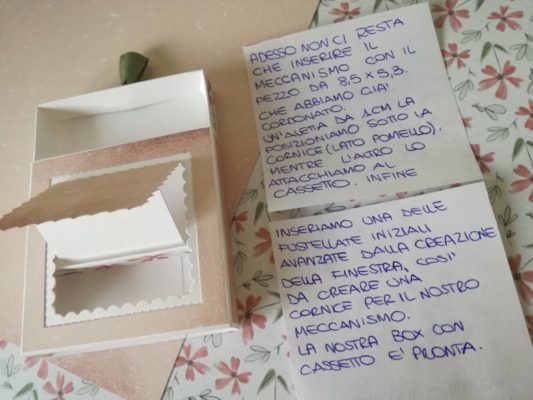 ADESSO NON CI RESTA
CHE INSERIRE IL
MECCANISMO CON IL
PEZZO DA 8,5 x 5,3.
CHE ABBIAMO GIA'
CORDONATO.
UN'ALETTA DA 1CM LA
POSIZIONIAMO SOTTO LA
CORNICE (LATO POMELLO),
MENTRE L'ALTRO LO
ATTACCHIAMO AL
CASSETTO. INFINE
INSERIAMO UNA DELLE
FUSTELLATE INIZIALI
AVANZATE DALLA CREAZIONE
DELLA FINESTRA, COSI'
DA CREARE UNA
CORNICE PER IL NOSTRO
MECCANISMO.
LA NOSTRA BOX CON
CASSETTO E' PRONTA.